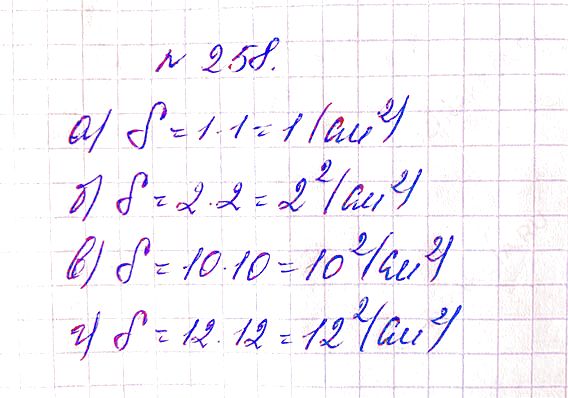 № 258.
а) S = 1 · 1 = 1 (см²)
б) S = 2 · 2 = 2² (см²)
в) S = 10 · 10 = 10² (см²)
г) S = 12 · 12 = 12² (см²)